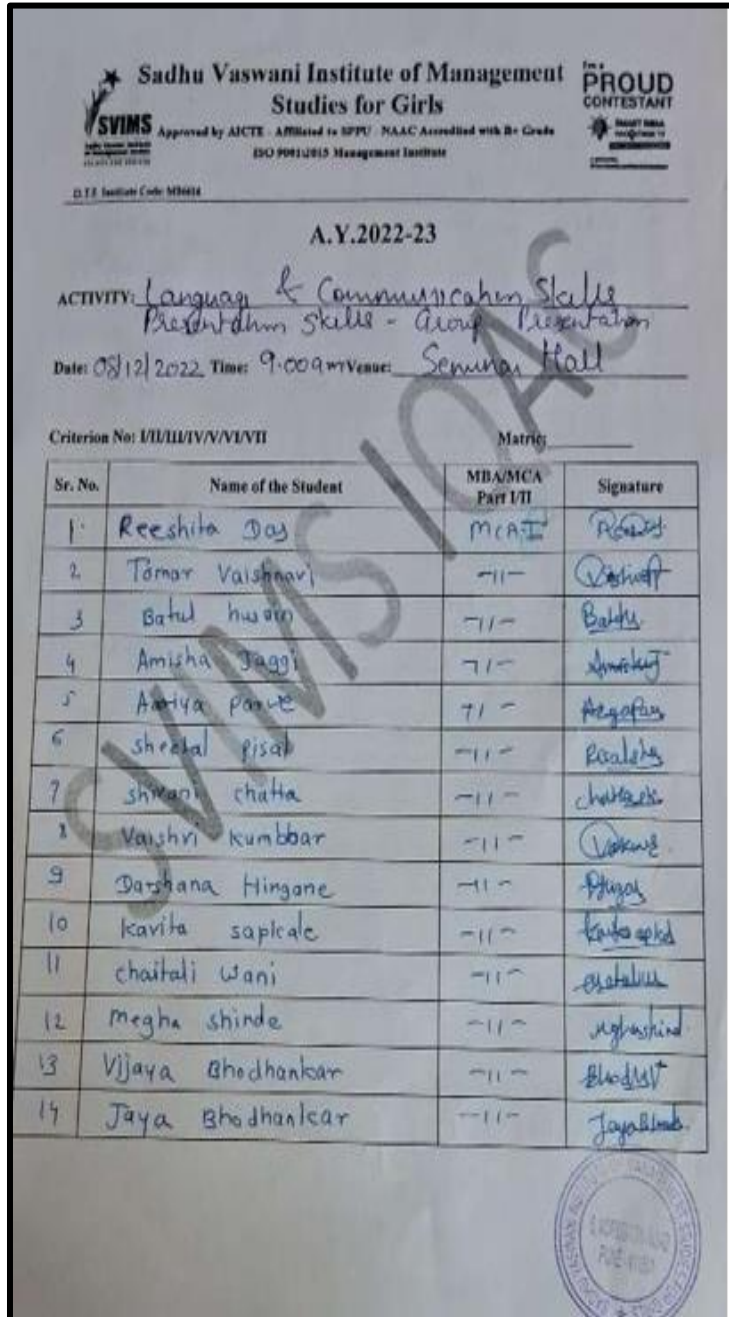 Sadhu Vaswani Institute of Management
Studies for Girls
SVIMS
Approved by AICTE - Affiliated to SPPU - NAAC Accredited with B+ Grade
ISO 9001:2015 Management Institute
I'm a
PROUD
CONTESTANT
D.T.E Institute Code:
A.Y.2022-23
ACTIVITY: Language & Communication Skills
Presentation Skills - Group Presentation
Date: 08/12/2022 Time: 9.00am Venue: Seminar Hall
Criterion No: I/II/III/IV/V/VI/VII Matric:
Sr. No. Name of the Student MBA/MCA Part I/II Signature
1. Reeshita Das MCA-I
2. Tomar Vaishnavi -11-
3 Batul husain -11-
4 Amisha Jaggi -11-
5 Parve -11-
6 sheetal pisal -11-
7 shivani chatta -11-
8 Vaishri kumbhar -11-
9 Darshana Hingane -11-
10 kavita sapkale -11-
11 chaitali wani -11-
12 megha shinde -11-
13 Vijaya Bhodhankar -11-
14 Jaya Bhodhankar -11-
SVIMS IQAC